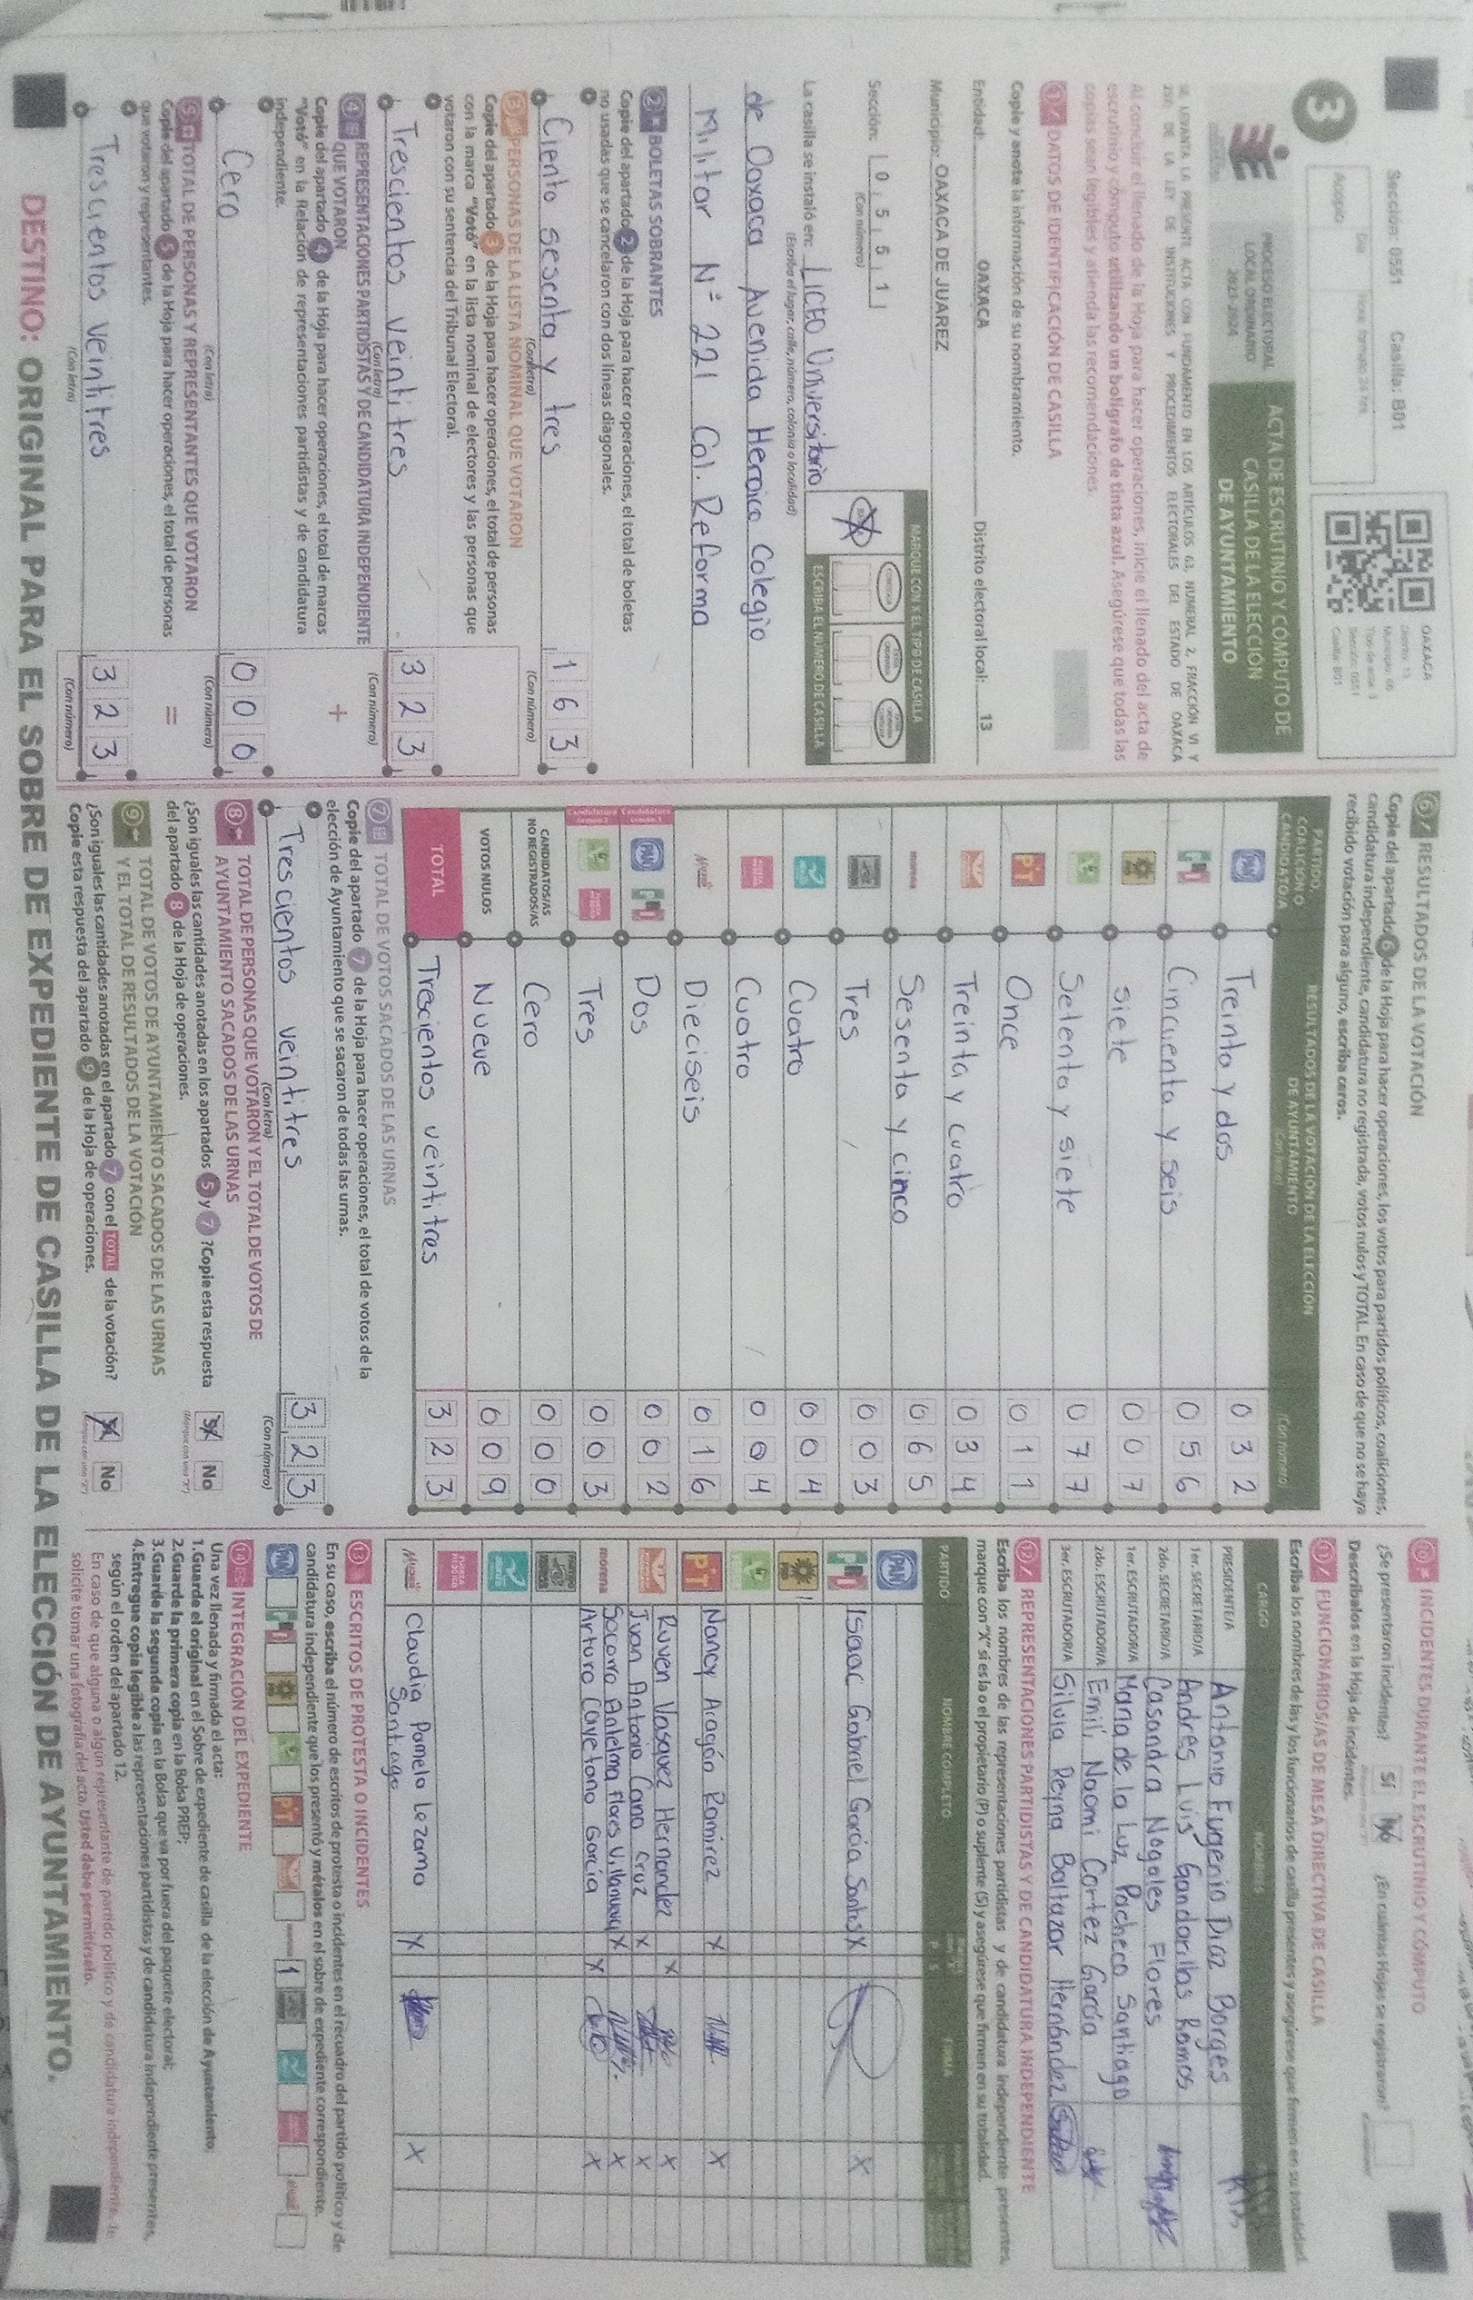 Sección: 0551 Casilla: B01
Acopio:
Día
Hora: formato 24 hrs.
OAXACA
Distrito: 13
Municipio: 66
Tipo de acta: 3
Sección: 0551
Casilla: B01
3
PROCESO ELECTORAL
LOCAL ORDINARIO
2023-2024
ACTA DE ESCRUTINIO Y CÓMPUTO DE
CASILLA DE LA ELECCIÓN
DE AYUNTAMIENTO
SE LEVANTA LA PRESENTE ACTA CON FUNDAMENTO EN LOS ARTÍCULOS 63, NUMERAL 2, FRACCIÓN VI Y
DE LA LEY DE INSTITUCIONES Y PROCEDIMIENTOS ELECTORALES DEL ESTADO DE OAXACA
Al concluir el llenado de la Hoja para hacer operaciones, inicie el llenado del acta de
escrutinio y cómputo utilizando un bolígrafo de tinta azul. Asegúrese que todas las
copias sean legibles y atienda las recomendaciones.
1 DATOS DE IDENTIFICACIÓN DE CASILLA
Copie y anote la información de su nombramiento.
Entidad: OAXACA Distrito electoral local: 13
Municipio: OAXACA DE JUAREZ
Sección: 0 5 5 1
(Con número)
MARQUE CON X EL TIPO DE CASILLA
ESCRIBA EL NÚMERO DE CASILLA
La casilla se instaló en: LICEO Universitario
(Escriba el lugar, calle, número, colonia o localidad)
de Oaxaca Avenida Heroico Colegio
Militar N° 221 Col. Reforma
2 BOLETAS SOBRANTES
Copie del apartado 2 de la Hoja para hacer operaciones, el total de boletas
no usadas que se cancelaron con dos líneas diagonales.
Ciento sesenta y tres 1 6 3
(Con letra) (Con número)
3 PERSONAS DE LA LISTA NOMINAL QUE VOTARON
Copie del apartado 3 de la Hoja para hacer operaciones, el total de personas
con la marca "Votó" en la lista nominal de electores y las personas que
votaron con su sentencia del Tribunal Electoral.
Trescientos veintitres 3 2 3
(Con letra) (Con número)
4 REPRESENTACIONES PARTIDISTAS Y DE CANDIDATURA INDEPENDIENTE
QUE VOTARON
Copie del apartado 4 de la Hoja para hacer operaciones, el total de marcas
"Votó" en la Relación de representaciones partidistas y de candidatura
independiente.
+
Cero 0 0 0
(Con letra) (Con número)
5 TOTAL DE PERSONAS Y REPRESENTANTES QUE VOTARON
Copie del apartado 5 de la Hoja para hacer operaciones, el total de personas
que votaron y representantes.
=
Trescientos veintitres 3 2 3
(Con letra) (Con número)
6 RESULTADOS DE LA VOTACIÓN
Copie del apartado 6 de la Hoja para hacer operaciones, los votos para partidos políticos, coaliciones,
candidatura independiente, candidatura no registrada, votos nulos y TOTAL. En caso de que no se haya
recibido votación para alguno, escriba ceros.
PARTIDO, COALICIÓN O CANDIDATO/A
RESULTADOS DE LA VOTACIÓN DE LA ELECCIÓN
DE AYUNTAMIENTO
(Con letra) (Con número)
PAN Treinta y dos 0 3 2
PRI Cincuenta y seis 0 5 6
siete 0 0 7
Setenta y siete 0 7 7
PT Once 0 1 1
Treinta y cuatro 0 3 4
morena Sesenta y cinco 0 6 5
Tres 0 0 3
Cuatro 0 0 4
Cuatro 0 0 4
Mujer Dieciseis 0 1 6
PAN PRI Dos 0 0 2
Tres 0 0 3
CANDIDATOS/AS
NO REGISTRADOS/AS Cero 0 0 0
VOTOS NULOS Nueve 0 0 9
TOTAL Trescientos veintitres 3 2 3
7 TOTAL DE VOTOS SACADOS DE LAS URNAS
Copie del apartado 7 de la Hoja para hacer operaciones, el total de votos de la
elección de Ayuntamiento que se sacaron de todas las urnas.
Trescientos veintitres 3 2 3
(Con letra) (Con número)
8 TOTAL DE PERSONAS QUE VOTARON Y EL TOTAL DE VOTOS DE
AYUNTAMIENTO SACADOS DE LAS URNAS
¿Son iguales las cantidades anotadas en los apartados 5 y 7? Copie esta respuesta
del apartado 8 de la Hoja de operaciones.
Sí No
(Marque con una "X")
9 TOTAL DE VOTOS DE AYUNTAMIENTO SACADOS DE LAS URNAS
Y EL TOTAL DE RESULTADOS DE LA VOTACIÓN
¿Son iguales las cantidades anotadas en el apartado 7 con el TOTAL de la votación?
Copie esta respuesta del apartado 9 de la Hoja de operaciones.
Sí No
(Marque con una "X")
10 INCIDENTES DURANTE EL ESCRUTINIO Y CÓMPUTO
¿Se presentaron incidentes? Sí No ¿En cuántas Hojas se registraron?
Descríbalos en la Hoja de incidentes.
11 FUNCIONARIOS/AS DE MESA DIRECTIVA DE CASILLA
Escriba los nombres de las y los funcionarios de casilla presentes y asegúrese que firmen en su totalidad.
CARGO NOMBRES
PRESIDENTE/A Antonio Eugenio Diaz Borges
1er. SECRETARIO/A Andres Luis Gandarillas Ramos
2do. SECRETARIO/A Casandra Nogales Flores
1er. ESCRUTADOR/A Maria de la Luz Pacheco Santiago
2do. ESCRUTADOR/A Emili Naomi Cortez Garcia
3er. ESCRUTADOR/A Silvia Reyna Baltazar Hernández
12 REPRESENTACIONES PARTIDISTAS Y DE CANDIDATURA INDEPENDIENTE
Escriba los nombres de las representaciones partidistas y de candidatura independiente presentes,
marque con "X" si es la o el propietario (P) o suplente (S) y asegúrese que firmen en su totalidad.
PARTIDO NOMBRE COMPLETO P S FIRMA
PAN
PRI Isaac Gabriel García Santos X X
PRD
PT Nancy Aragón Ramirez X X
Ruven Vasquez Hernandez X X
Ivan Antonio Cano Cruz X X
morena Socorro Antelma Flores Villanueva X X
Arturo Cayetano Garcia X X
Mujer Claudia Pamela Lezama
Santiago X X
13 ESCRITOS DE PROTESTA O INCIDENTES
En su caso, escriba el número de escritos de protesta o incidentes en el recuadro del partido político y de
candidatura independiente que los presentó y métalos en el sobre de expediente correspondiente.
1
14 INTEGRACIÓN DEL EXPEDIENTE
Una vez llenada y firmada el acta:
1.Guarde el original en el Sobre de expediente de casilla de la elección de Ayuntamiento;
2.Guarde la primera copia en la Bolsa PREP;
3.Guarde la segunda copia en la Bolsa que va por fuera del paquete electoral;
4.Entregue copia legible a las representaciones partidistas y de candidatura independiente presentes,
según el orden del apartado 12.
En caso de que alguna o algún representante de partido político y de candidatura independiente, le
solicite tomar una fotografía del acta, Usted debe permitírselo.
DESTINO: ORIGINAL PARA EL SOBRE DE EXPEDIENTE DE CASILLA DE LA ELECCIÓN DE AYUNTAMIENTO.